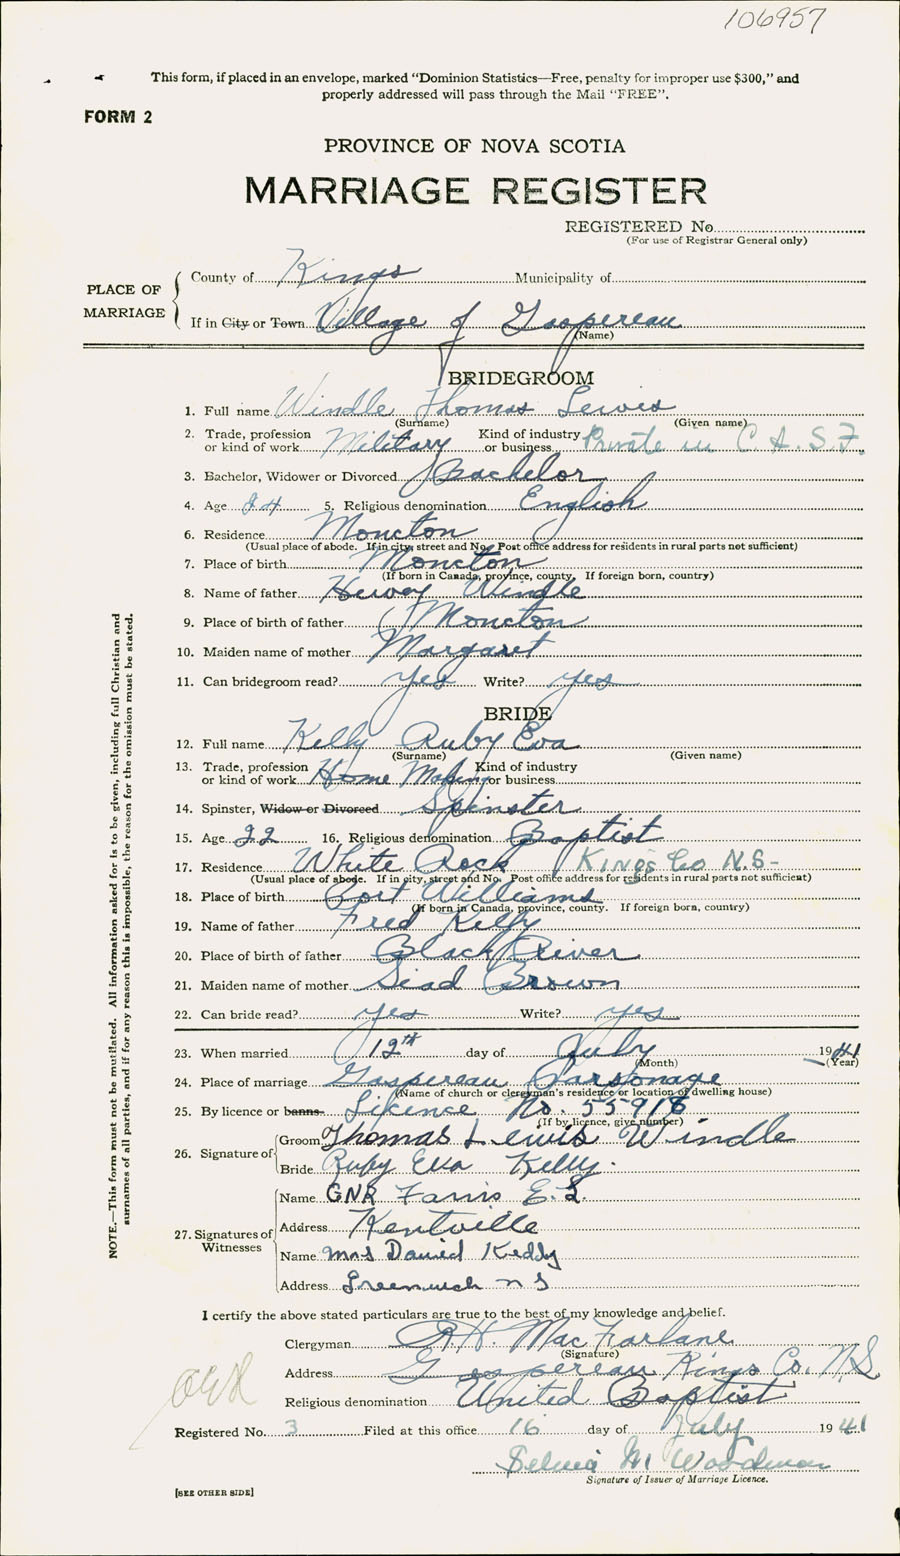 106957
This form, if placed in an envelope, marked "Dominion Statistics—Free, penalty for improper use $300," and
properly addressed will pass through the Mail "FREE".
FORM 2
PROVINCE OF NOVA SCOTIA
MARRIAGE REGISTER
REGISTERED No.
(For use of Registrar General only)
PLACE OF MARRIAGE
County of Kings Municipality of
If in City or Town Village of Gaspereau
(Name)
BRIDEGROOM
1. Full name Windle Thomas Lewis
(Surname) (Given name)
2. Trade, profession or kind of work Military Kind of industry or business Private in C A. S. F.
3. Bachelor, Widower or Divorced Bachelor
4. Age 24 5. Religious denomination English
6. Residence Moncton
(Usual place of abode. If in city, street and No. Post office address for residents in rural parts not sufficient)
7. Place of birth Moncton
(If born in Canada, province, county. If foreign born, country)
8. Name of father Windle
9. Place of birth of father Moncton
10. Maiden name of mother Margaret
11. Can bridegroom read? yes Write? yes
BRIDE
12. Full name Kelly Ruby Eva
(Surname) (Given name)
13. Trade, profession or kind of work Home Making Kind of industry or business
14. Spinster, Widow or Divorced Spinster
15. Age 22 16. Religious denomination Baptist
17. Residence White Rock Kings Co N.S-
(Usual place of abode. If in city, street and No. Post office address for residents in rural parts not sufficient)
18. Place of birth Port Williams
(If born in Canada, province, county. If foreign born, country)
19. Name of father Fred Kelly
20. Place of birth of father Black River
21. Maiden name of mother Brown
22. Can bride read? yes Write? yes
23. When married 12th day of July 1941
(Month) (Year)
24. Place of marriage Gaspereau Parsonage
(Name of church or clergyman's residence or location of dwelling house)
25. By licence or banns Licence No. 55918
(If by licence, give number)
26. Signature of
Groom Thomas Lewis Windle
Bride Ruby Eva Kelly.
27. Signatures of Witnesses
Name GNR Farris E. L.
Address Kentville
Name Mrs David Keddy
Address Greenwich n s
I certify the above stated particulars are true to the best of my knowledge and belief.
Clergyman R. H. MacFarlane
(Signature)
Address Gaspereau Kings Co. N.S.
Religious denomination United Baptist
Registered No. 3 Filed at this office 16 day of July 1941
M Woodman
Signature of Issuer of Marriage Licence.
[SEE OTHER SIDE]
NOTE.—This form must not be mutilated. All information asked for is to be given, including full Christian and
surnames of all parties, and if for any reason this is impossible, the reason for the omission must be stated.